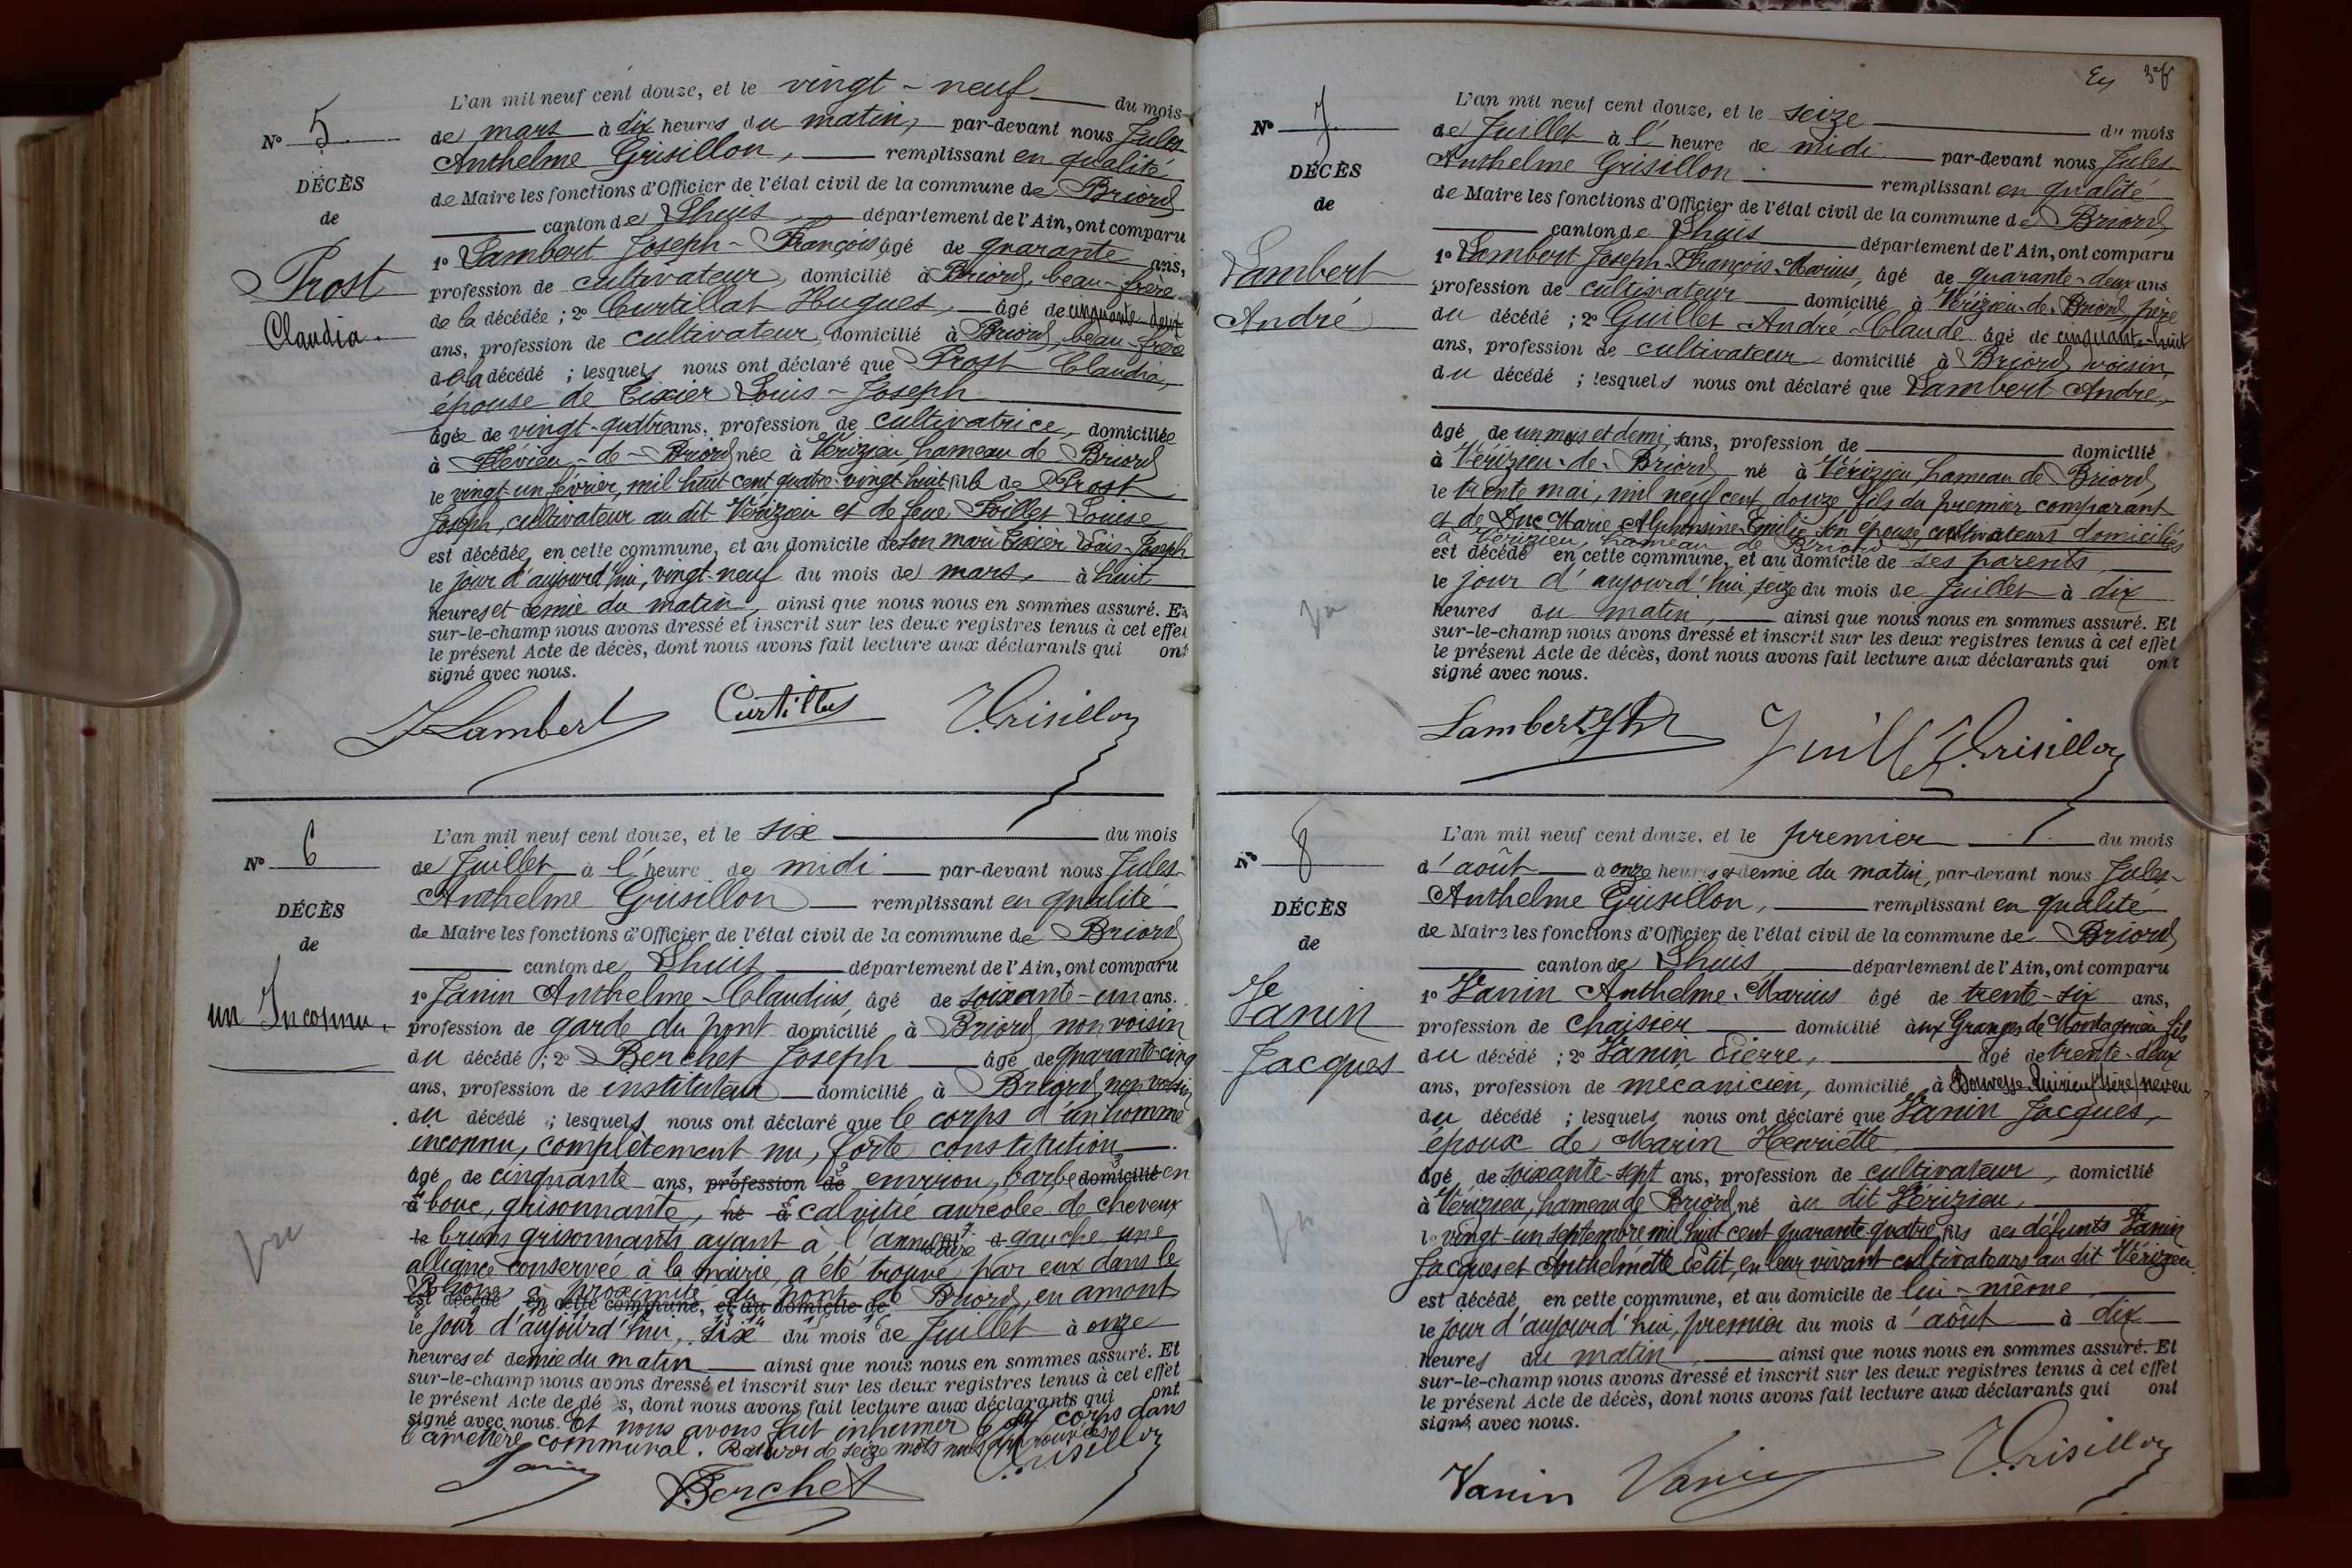 L'an mil neuf cent douze, et le vingt-neuf du mois
N° 5
de mars à dix heures du matin, par-devant nous Jules
Anthelme Grisillon, remplissant en qualité
DÉCÈS
de Maire les fonctions d'Officier de l'état civil de la commune de Briord
de
canton de Lhuis, département de l'Ain, ont comparu
1° Lambert Joseph-François âgé de quarante ans,
Prost
profession de cultivateur, domicilié à Briord, beau-frère
Claudia.
de la décédée ; 2° Curtillat Hugues, âgé de cinquante-deux
ans, profession de cultivateur, domicilié à Briord, beau-frère
de la décédé ; lesquels nous ont déclaré que Prost Claudia,
épouse de Tixier Louis-Joseph
âgée de vingt-quatre ans, profession de cultivatrice, domiciliée
à Flévieu-de-Briord née à Vérizieu, hameau de Briord
le vingt-un février, mil huit cent quatre-vingt huit fille de Prost
Joseph, cultivateur au dit Vérizieu et de feue Louise
est décédée en cette commune, et au domicile de son mari Tixier Louis-Joseph
le jour d'aujourd'hui, vingt-neuf du mois de mars, à huit
heures et demie du matin, ainsi que nous nous en sommes assuré. Et
sur-le-champ nous avons dressé et inscrit sur les deux registres tenus à cet effet
le présent Acte de décès, dont nous avons fait lecture aux déclarants qui ont
signé avec nous.
J Lambert Grisillon
L'an mil neuf cent douze, et le six du mois
N° 6
de Juillet à l'heure de midi par-devant nous Jules-
Anthelme Grisillon remplissant en qualité
DÉCÈS
de Maire les fonctions d'Officier de l'état civil de la commune de Briord
de
canton de Lhuis département de l'Ain, ont comparu
1° Janin Anthelme-Claudius, âgé de soixante-un ans.
un Inconnu.
profession de garde du pont domicilié à Briord, non voisin
du décédé ; 2° Berchet Joseph âgé de quarante-cinq
ans, profession de instituteur domicilié à Briord, non voisin
du décédé ; lesquels nous ont déclaré que le corps d'un homme
inconnu, complètement nu, forte constitution
âgé de cinquante ans, profession de environ, barbe domicilié en
à bouc, grisonnante, né à calvitie auréolée de cheveux
le bruns grisonnants ayant à l'annulaire gauche une
alliance conservée à la mairie, a été trouvé par eux dans le
Rhône à proximité du pont de Briord, en amont
est décédé en cette commune, et au domicile de
le jour d'aujourd'hui, six du mois de Juillet à onze
heures et demie du matin ainsi que nous nous en sommes assuré. Et
sur-le-champ nous avons dressé et inscrit sur les deux registres tenus à cet effet
le présent Acte de décès, dont nous avons fait lecture aux déclarants qui ont
signé avec nous. Et nous avons fait inhumer le dit corps dans
le cimetière communal. de seize mots nuls
Janin Berchet Grisillon
L'an mil neuf cent douze, et le seize du mois
N° 7
de Juillet à l'heure de midi par-devant nous Jules
Anthelme Grisillon remplissant en qualité
DÉCÈS
de Maire les fonctions d'Officier de l'état civil de la commune de Briord
de
canton de Lhuis département de l'Ain, ont comparu
1° Lambert Joseph-François-Marius, âgé de quarante-deux ans
Lambert
profession de cultivateur domicilié à Vérizieu-de-Briord, père
André
du décédé ; 2° Guillet André-Claude âgé de cinquante-huit
ans, profession de cultivateur domicilié à Briord, voisin,
du décédé ; lesquels nous ont déclaré que Lambert André,
âgé de un mois et demi, ans, profession de domicilié
à Vérizieu-de-Briord né à Vérizieu, hameau de Briord
le trente mai, mil neuf cent douze, fils du premier comparant
et de Duc Marie Alphonsine-Emilie son épouse, cultivateurs domiciliés
à Vérizieu, hameau de Briord
est décédé en cette commune, et au domicile de ses parents
le jour d'aujourd'hui, seize du mois de Juillet à dix
heures du matin, ainsi que nous nous en sommes assuré. Et
sur-le-champ nous avons dressé et inscrit sur les deux registres tenus à cet effet
le présent Acte de décès, dont nous avons fait lecture aux déclarants qui ont
signé avec nous.
Lambert Grisillon
L'an mil neuf cent douze, et le premier du mois
N° 8
d'août à onze heures et demie du matin, par-devant nous Jules-
Anthelme Grisillon, remplissant en qualité
DÉCÈS
de Maire les fonctions d'Officier de l'état civil de la commune de Briord
de
canton de Lhuis département de l'Ain, ont comparu
Vanin
1° Vanin Anthelme-Marius âgé de trente-six ans,
profession de chaisier domicilié aux Granges de Montagnieu fils
Jacques
du décédé ; 2° Vanin Pierre, âgé de trente-deux
ans, profession de mécanicien, domicilié à Bouvesse-Quirieu (Isère) neveu
du décédé ; lesquels nous ont déclaré que Vanin Jacques,
époux de Marin Henriette
âgé de soixante-sept ans, profession de cultivateur, domicilié
à Vérizieu, hameau de Briord, né au dit Vérizieu,
le vingt-un septembre mil huit cent quarante quatre fils des défunts Vanin
Jacques et Anthelmette Petit, en leur vivant cultivateurs au dit Vérizieu
est décédé en cette commune, et au domicile de lui-même
le jour d'aujourd'hui, premier du mois d'août à dix
heures du matin, ainsi que nous nous en sommes assuré. Et
sur-le-champ nous avons dressé et inscrit sur les deux registres tenus à cet effet
le présent Acte de décès, dont nous avons fait lecture aux déclarants qui ont
signé avec nous.
Vanin Vanin Grisillon